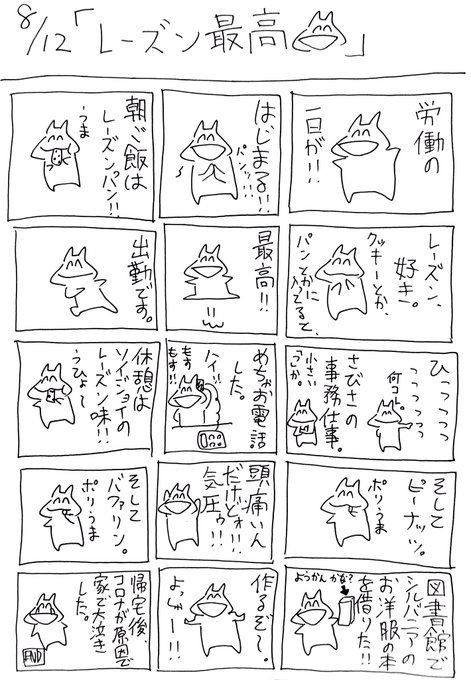 8/12「レーズン最高」
労働の
一日が!!
はじまる!!
パンッ!!
朝ご飯は
レーズンパン!!
うま
レーズン、
好き。
クッキーとか、
パンとかに
入ってると、
最高!!
出勤です。
ひっっっっ
っっっっっ
何コレ。
さびさの
事務仕事。
小さい
「っ」か。
めちゃお電話
した。
ハイッ!!
もす
もす!!
休憩は
ソイジョイの
レーズン味!!
うひょ〜
そして
ピーナッツ。
ポリうま
頭痛いん
だけどォ!!
気圧ゥ!!
そして
バファリン。
ポリうま
図書館で
シルバニアの
お洋服の本
を借りた!!
ようかんかな?
作るぞ〜。
よっしゃー!!
帰宅後、
コロナが原因で
家で大泣き
した。
END